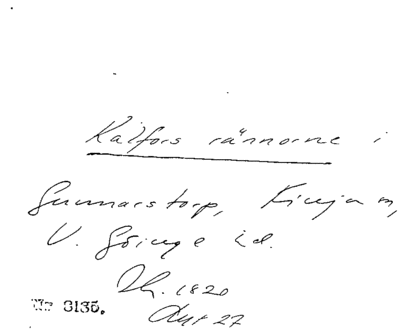 Kälfors rännorne i
Gunnarstorp, Kinja sn,
V. Göinge hd.
Dh. 1820
Avt 27
Nr 3135.